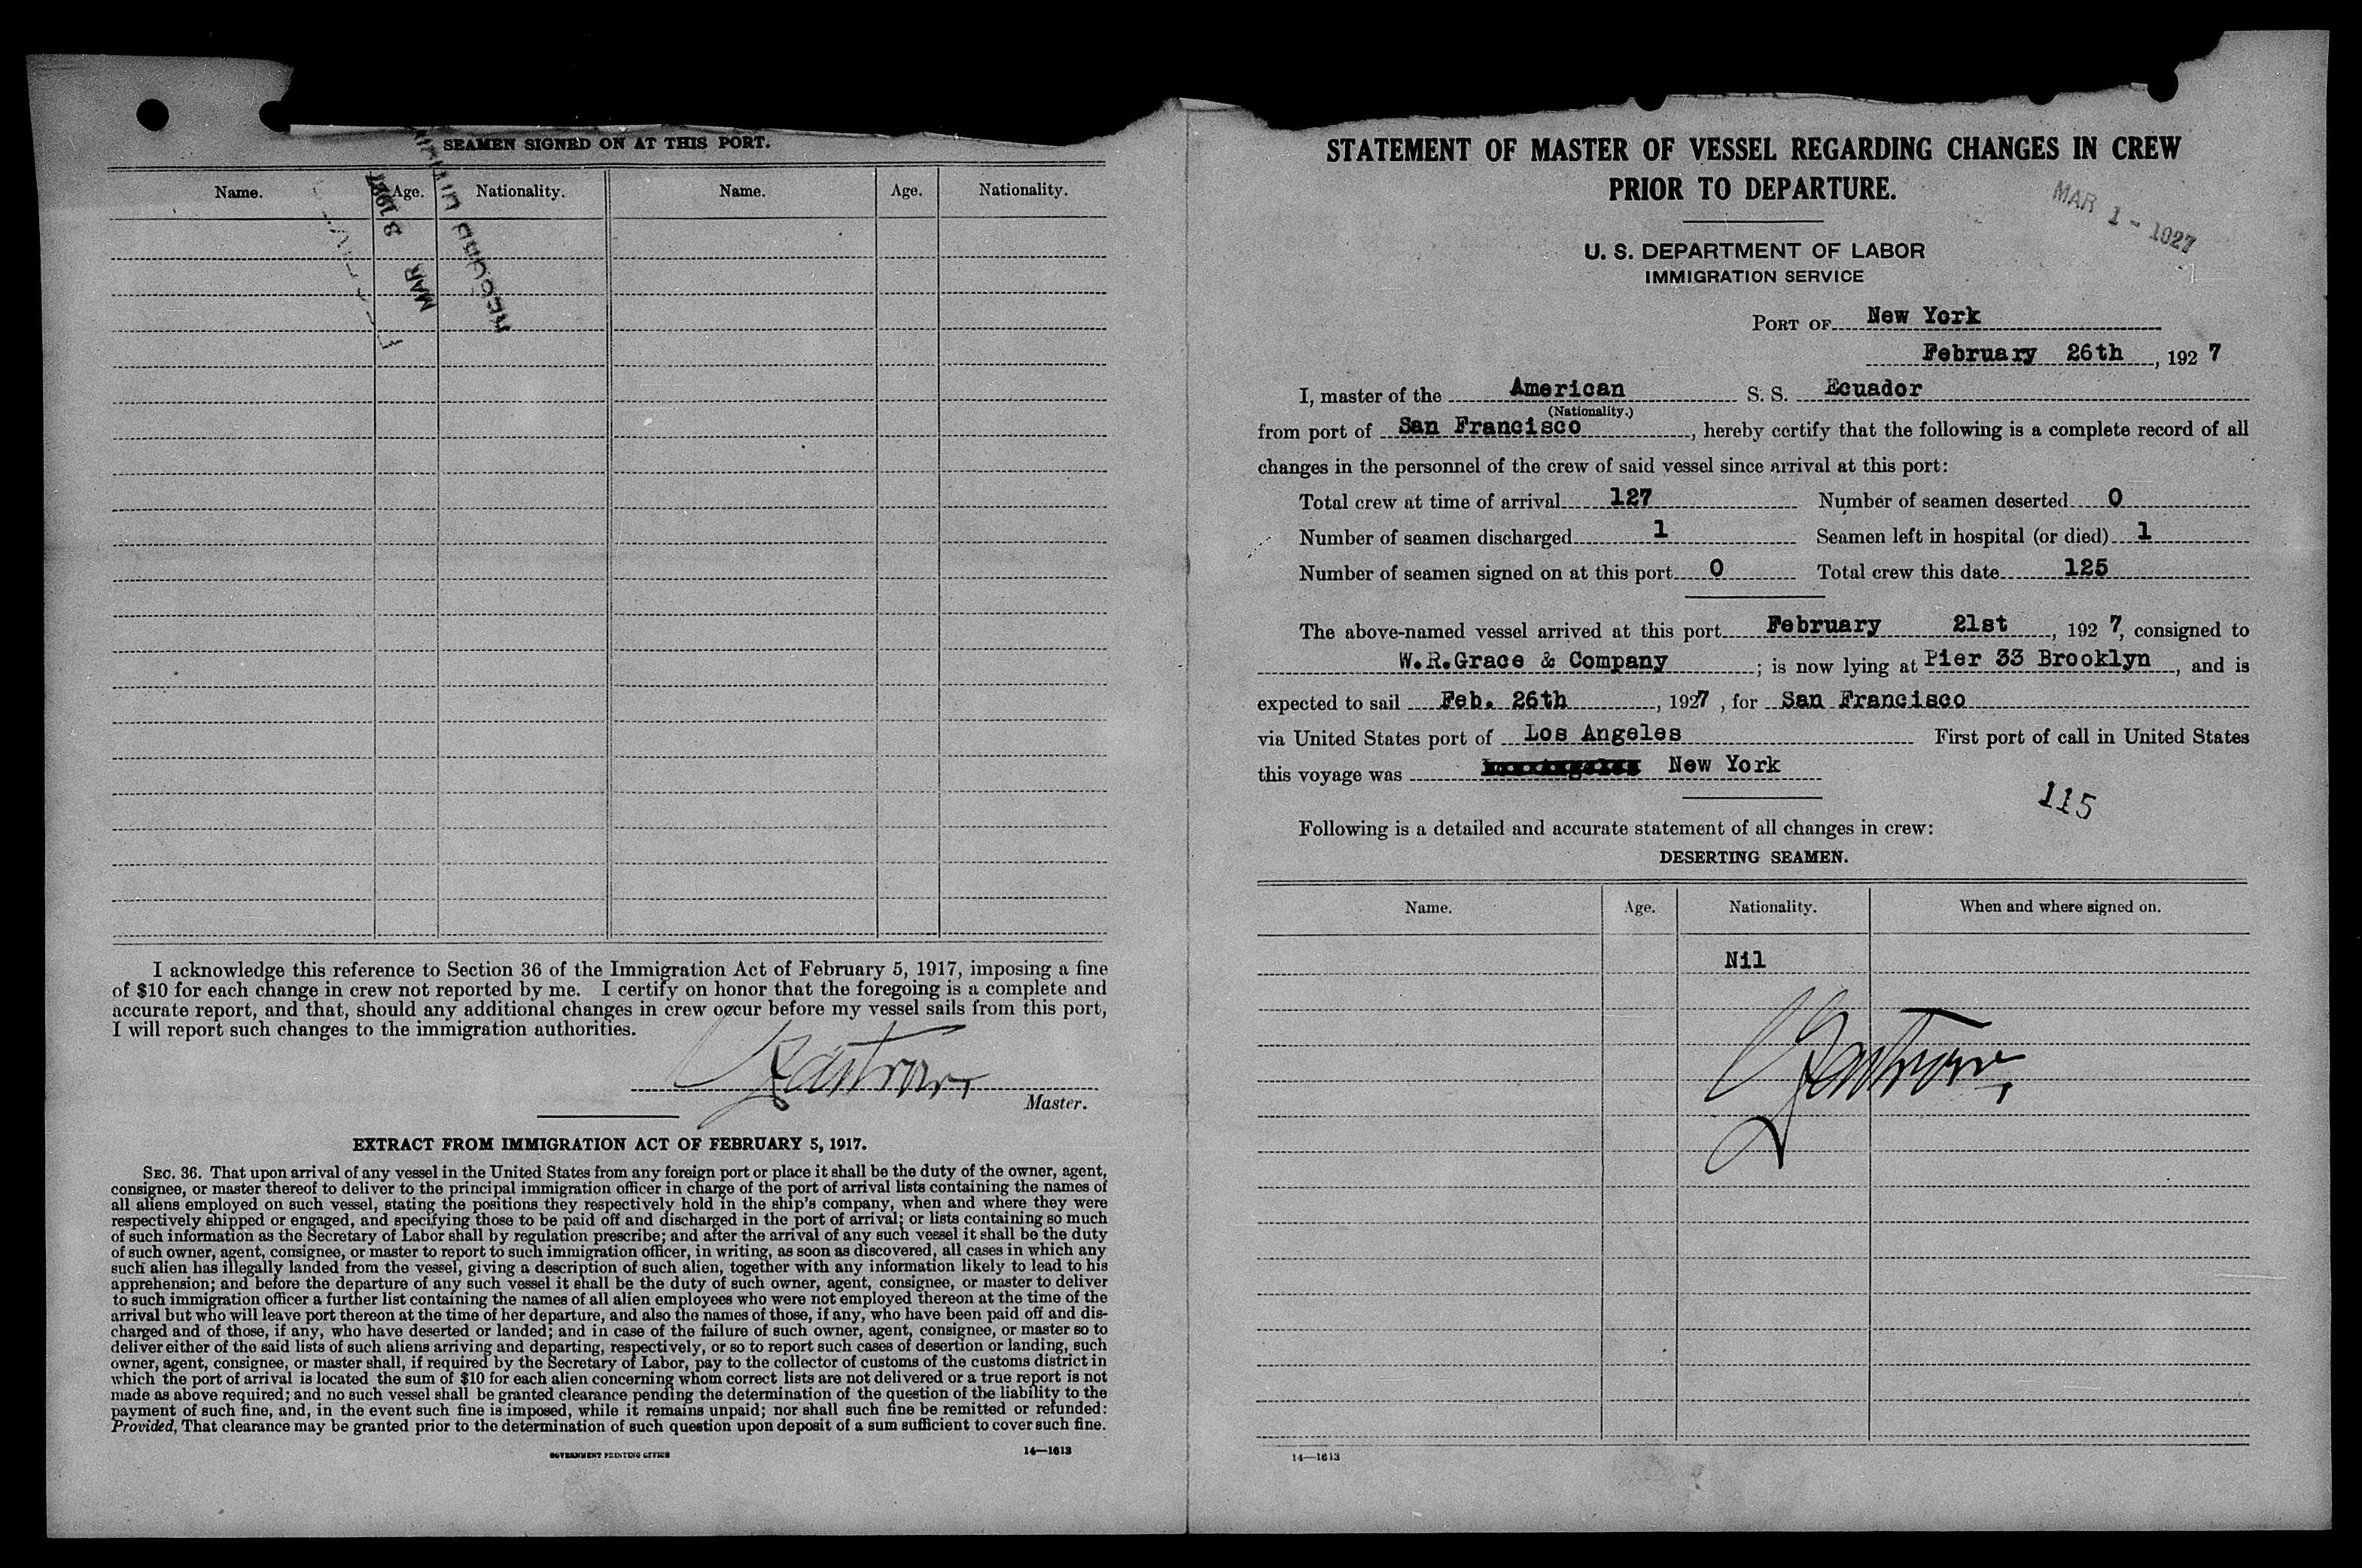 SEAMEN SIGNED ON AT THIS PORT.
Name. Age. Nationality. Name. Age. Nationality.
MAR 3 1927
RECORD
I acknowledge this reference to Section 36 of the Immigration Act of February 5, 1917, imposing a fine
of $10 for each change in crew not reported by me. I certify on honor that the foregoing is a complete and
accurate report, and that, should any additional changes in crew occur before my vessel sails from this port,
I will report such changes to the immigration authorities.
Master.
EXTRACT FROM IMMIGRATION ACT OF FEBRUARY 5, 1917.
SEC. 36. That upon arrival of any vessel in the United States from any foreign port or place it shall be the duty of the owner, agent,
consignee, or master thereof to deliver to the principal immigration officer in charge of the port of arrival lists containing the names of
all aliens employed on such vessel, stating the positions they respectively hold in the ship's company, when and where they were
respectively shipped or engaged, and specifying those to be paid off and discharged in the port of arrival; or lists containing so much
of such information as the Secretary of Labor shall by regulation prescribe; and after the arrival of any such vessel it shall be the duty
of such owner, agent, consignee, or master to report to such immigration officer, in writing, as soon as discovered, all cases in which any
such alien has illegally landed from the vessel, giving a description of such alien, together with any information likely to lead to his
apprehension; and before the departure of any such vessel it shall be the duty of such owner, agent, consignee, or master to deliver
to such immigration officer a further list containing the names of all alien employees who were not employed thereon at the time of the
arrival but who will leave port thereon at the time of her departure, and also the names of those, if any, who have been paid off and dis-
charged and of those, if any, who have deserted or landed; and in case of the failure of such owner, agent, consignee, or master so to
deliver either of the said lists of such aliens arriving and departing, respectively, or so to report such cases of desertion or landing, such
owner, agent, consignee, or master shall, if required by the Secretary of Labor, pay to the collector of customs of the customs district in
which the port of arrival is located the sum of $10 for each alien concerning whom correct lists are not delivered or a true report is not
made as above required; and no such vessel shall be granted clearance pending the determination of the question of the liability to the
payment of such fine, and, in the event such fine is imposed, while it remains unpaid; nor shall such fine be remitted or refunded:
Provided, That clearance may be granted prior to the determination of such question upon deposit of a sum sufficient to cover such fine.
GOVERNMENT PRINTING OFFICE 14—1613
STATEMENT OF MASTER OF VESSEL REGARDING CHANGES IN CREW
PRIOR TO DEPARTURE.
MAR 1 - 1927
U. S. DEPARTMENT OF LABOR
IMMIGRATION SERVICE
PORT OF New York
February 26th, 1927
I, master of the American S. S. Ecuador
(Nationality.)
from port of San Francisco, hereby certify that the following is a complete record of all
changes in the personnel of the crew of said vessel since arrival at this port:
Total crew at time of arrival 127 Number of seamen deserted 0
Number of seamen discharged 1 Seamen left in hospital (or died) 1
Number of seamen signed on at this port 0 Total crew this date 125
The above-named vessel arrived at this port February 21st, 1927, consigned to
W.R.Grace & Company; is now lying at Pier 33 Brooklyn, and is
expected to sail Feb. 26th, 1927, for San Francisco
via United States port of Los Angeles First port of call in United States
this voyage was New York
115
Following is a detailed and accurate statement of all changes in crew:
DESERTING SEAMEN.
Name. Age. Nationality. When and where signed on.
Nil
14—1613